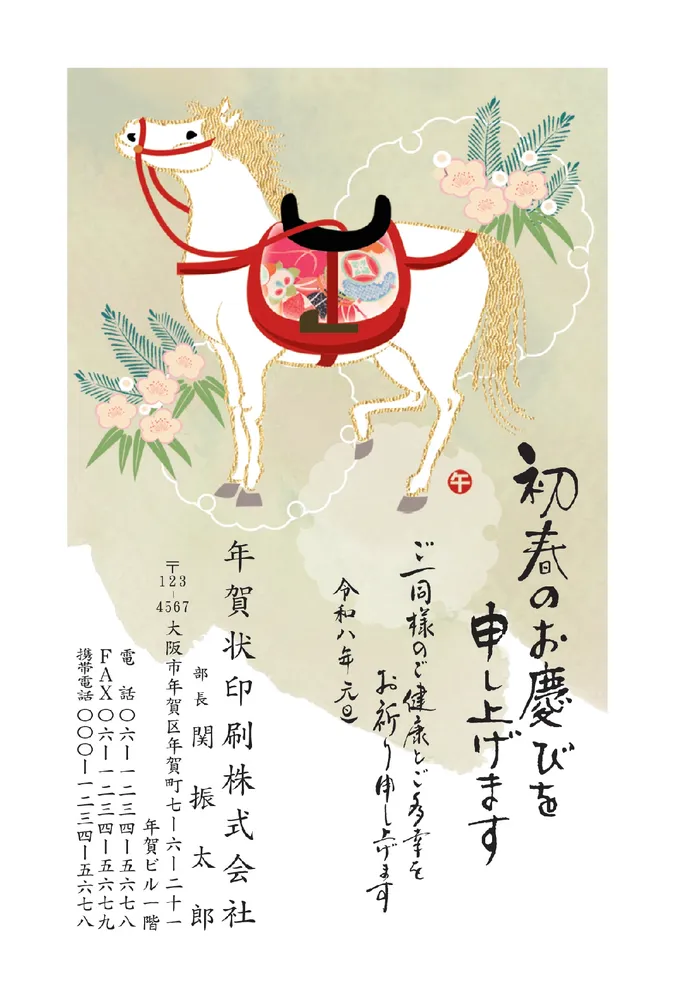 初春のお慶びを
申し上げます
ご一同様のご健康とご多幸を
お祈り申し上げます
令和八年 元旦
午
年賀状印刷株式会社
部長 関振太郎
〒123-4567 大阪市年賀区年賀町七ー六ー二十一
年賀ビル一階
電話 〇六ー一二三四ー五六七八
FAX 〇六ー一二三四ー五六七九
携帯電話 〇〇〇ー一二三四ー五六七八